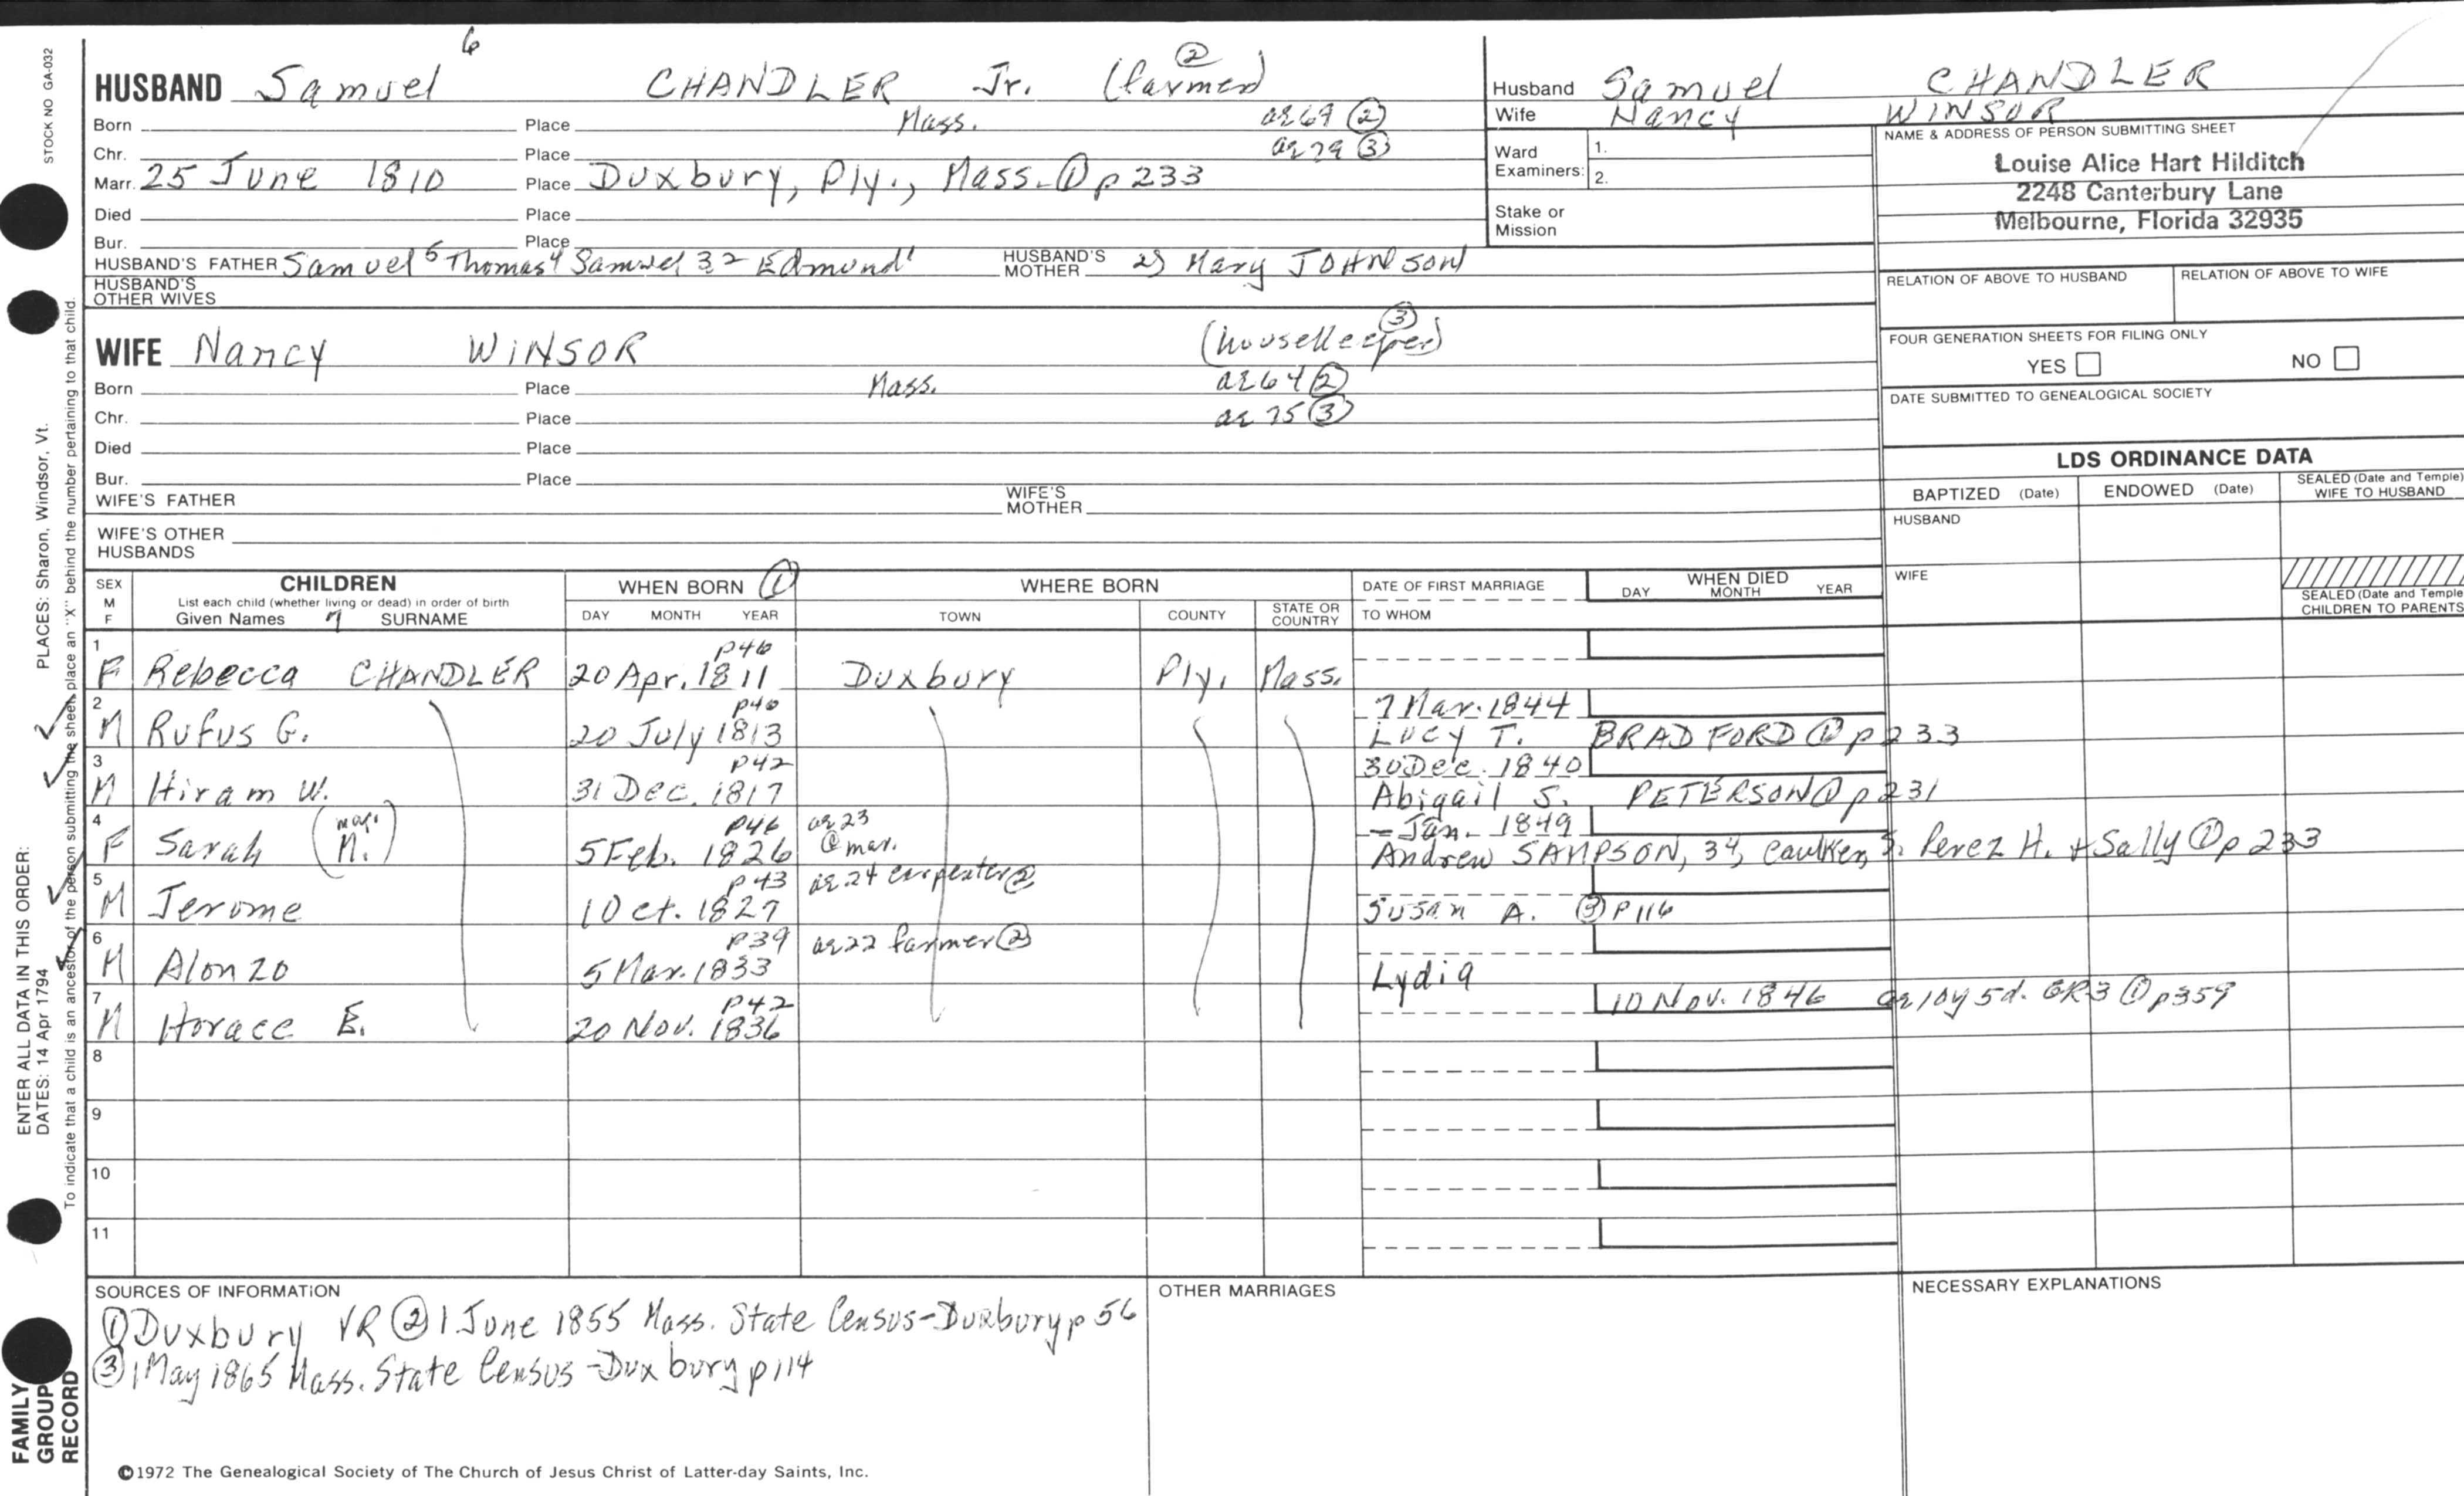 STOCK NO GA-032
6
HUSBAND Samuel CHANDLER Jr. (farmer) ②
Born Place Mass. ae 69 ②
Chr. Place ae 79 ③
Marr. 25 June 1810 Place Duxbury, Ply., Mass. ① p 233
Died Place
Bur. Place
HUSBAND'S FATHER Samuel 5 Thomas 4 Samuel 3 2 Edmund 1 HUSBAND'S MOTHER 2) Mary JOHNSON
HUSBAND'S OTHER WIVES
Husband Samuel CHANDLER
Wife Nancy WINSOR
Ward Examiners: 1.
2.
Stake or Mission
NAME & ADDRESS OF PERSON SUBMITTING SHEET
Louise Alice Hart Hilditch
2248 Canterbury Lane
Melbourne, Florida 32935
RELATION OF ABOVE TO HUSBAND RELATION OF ABOVE TO WIFE
FOUR GENERATION SHEETS FOR FILING ONLY
YES NO
DATE SUBMITTED TO GENEALOGICAL SOCIETY
WIFE Nancy WINSOR (housekeeper) ③
Born Place Mass. ae 64 ②
Chr. Place ae 75 ③
Died Place
Bur. Place
WIFE'S FATHER WIFE'S MOTHER
WIFE'S OTHER HUSBANDS
LDS ORDINANCE DATA
BAPTIZED (Date) ENDOWED (Date) SEALED (Date and Temple) WIFE TO HUSBAND
HUSBAND
WIFE
SEALED (Date and Temple CHILDREN TO PARENTS
SEX M F CHILDREN WHEN BORN ① WHERE BORN DATE OF FIRST MARRIAGE WHEN DIED
List each child (whether living or dead) in order of birth DAY MONTH YEAR
Given Names 7 SURNAME DAY MONTH YEAR TOWN COUNTY STATE OR COUNTRY TO WHOM
1 p46
F Rebecca CHANDLER 20 Apr. 1811 Duxbury Ply. Mass.
2 p46 7 Mar. 1844
M Rufus G. 20 July 1813 Lucy T. BRADFORD ① p 233
3 p42 30 Dec. 1840
M Hiram W. 31 Dec. 1817 Abigail S. PETERSON ① p 231
4 p46 ae 23 @ mar. – Jan. 1849
F Sarah (mar. M.) 5 Feb. 1826 Andrew SAMPSON, 34, caulker, s. Perez H. + Sally ① p 233
5 p43 ae 24 carpenter ②
M Jerome 1 Oct. 1827 Susan A. ③ p 116
6 p39 ae 22 farmer ②
M Alonzo 5 Mar. 1833 Lydia
7 p42 10 Nov. 1846 ae 10y 5d. GR3 ① p359
M Horace E. 20 Nov. 1836
8
9
10
11
SOURCES OF INFORMATION
① Duxbury VR ② 1 June 1855 Mass. State Census-Duxbury p 56
③ 1 May 1865 Mass. State Census-Duxbury p 114
OTHER MARRIAGES
NECESSARY EXPLANATIONS
©1972 The Genealogical Society of The Church of Jesus Christ of Latter-day Saints, Inc.
ENTER ALL DATA IN THIS ORDER:
DATES: 14 Apr 1794 PLACES: Sharon, Windsor, Vt.
To indicate that a child is an ancestor of the person submitting the sheet, place an "X" behind the number pertaining to that child.
FAMILY GROUP RECORD